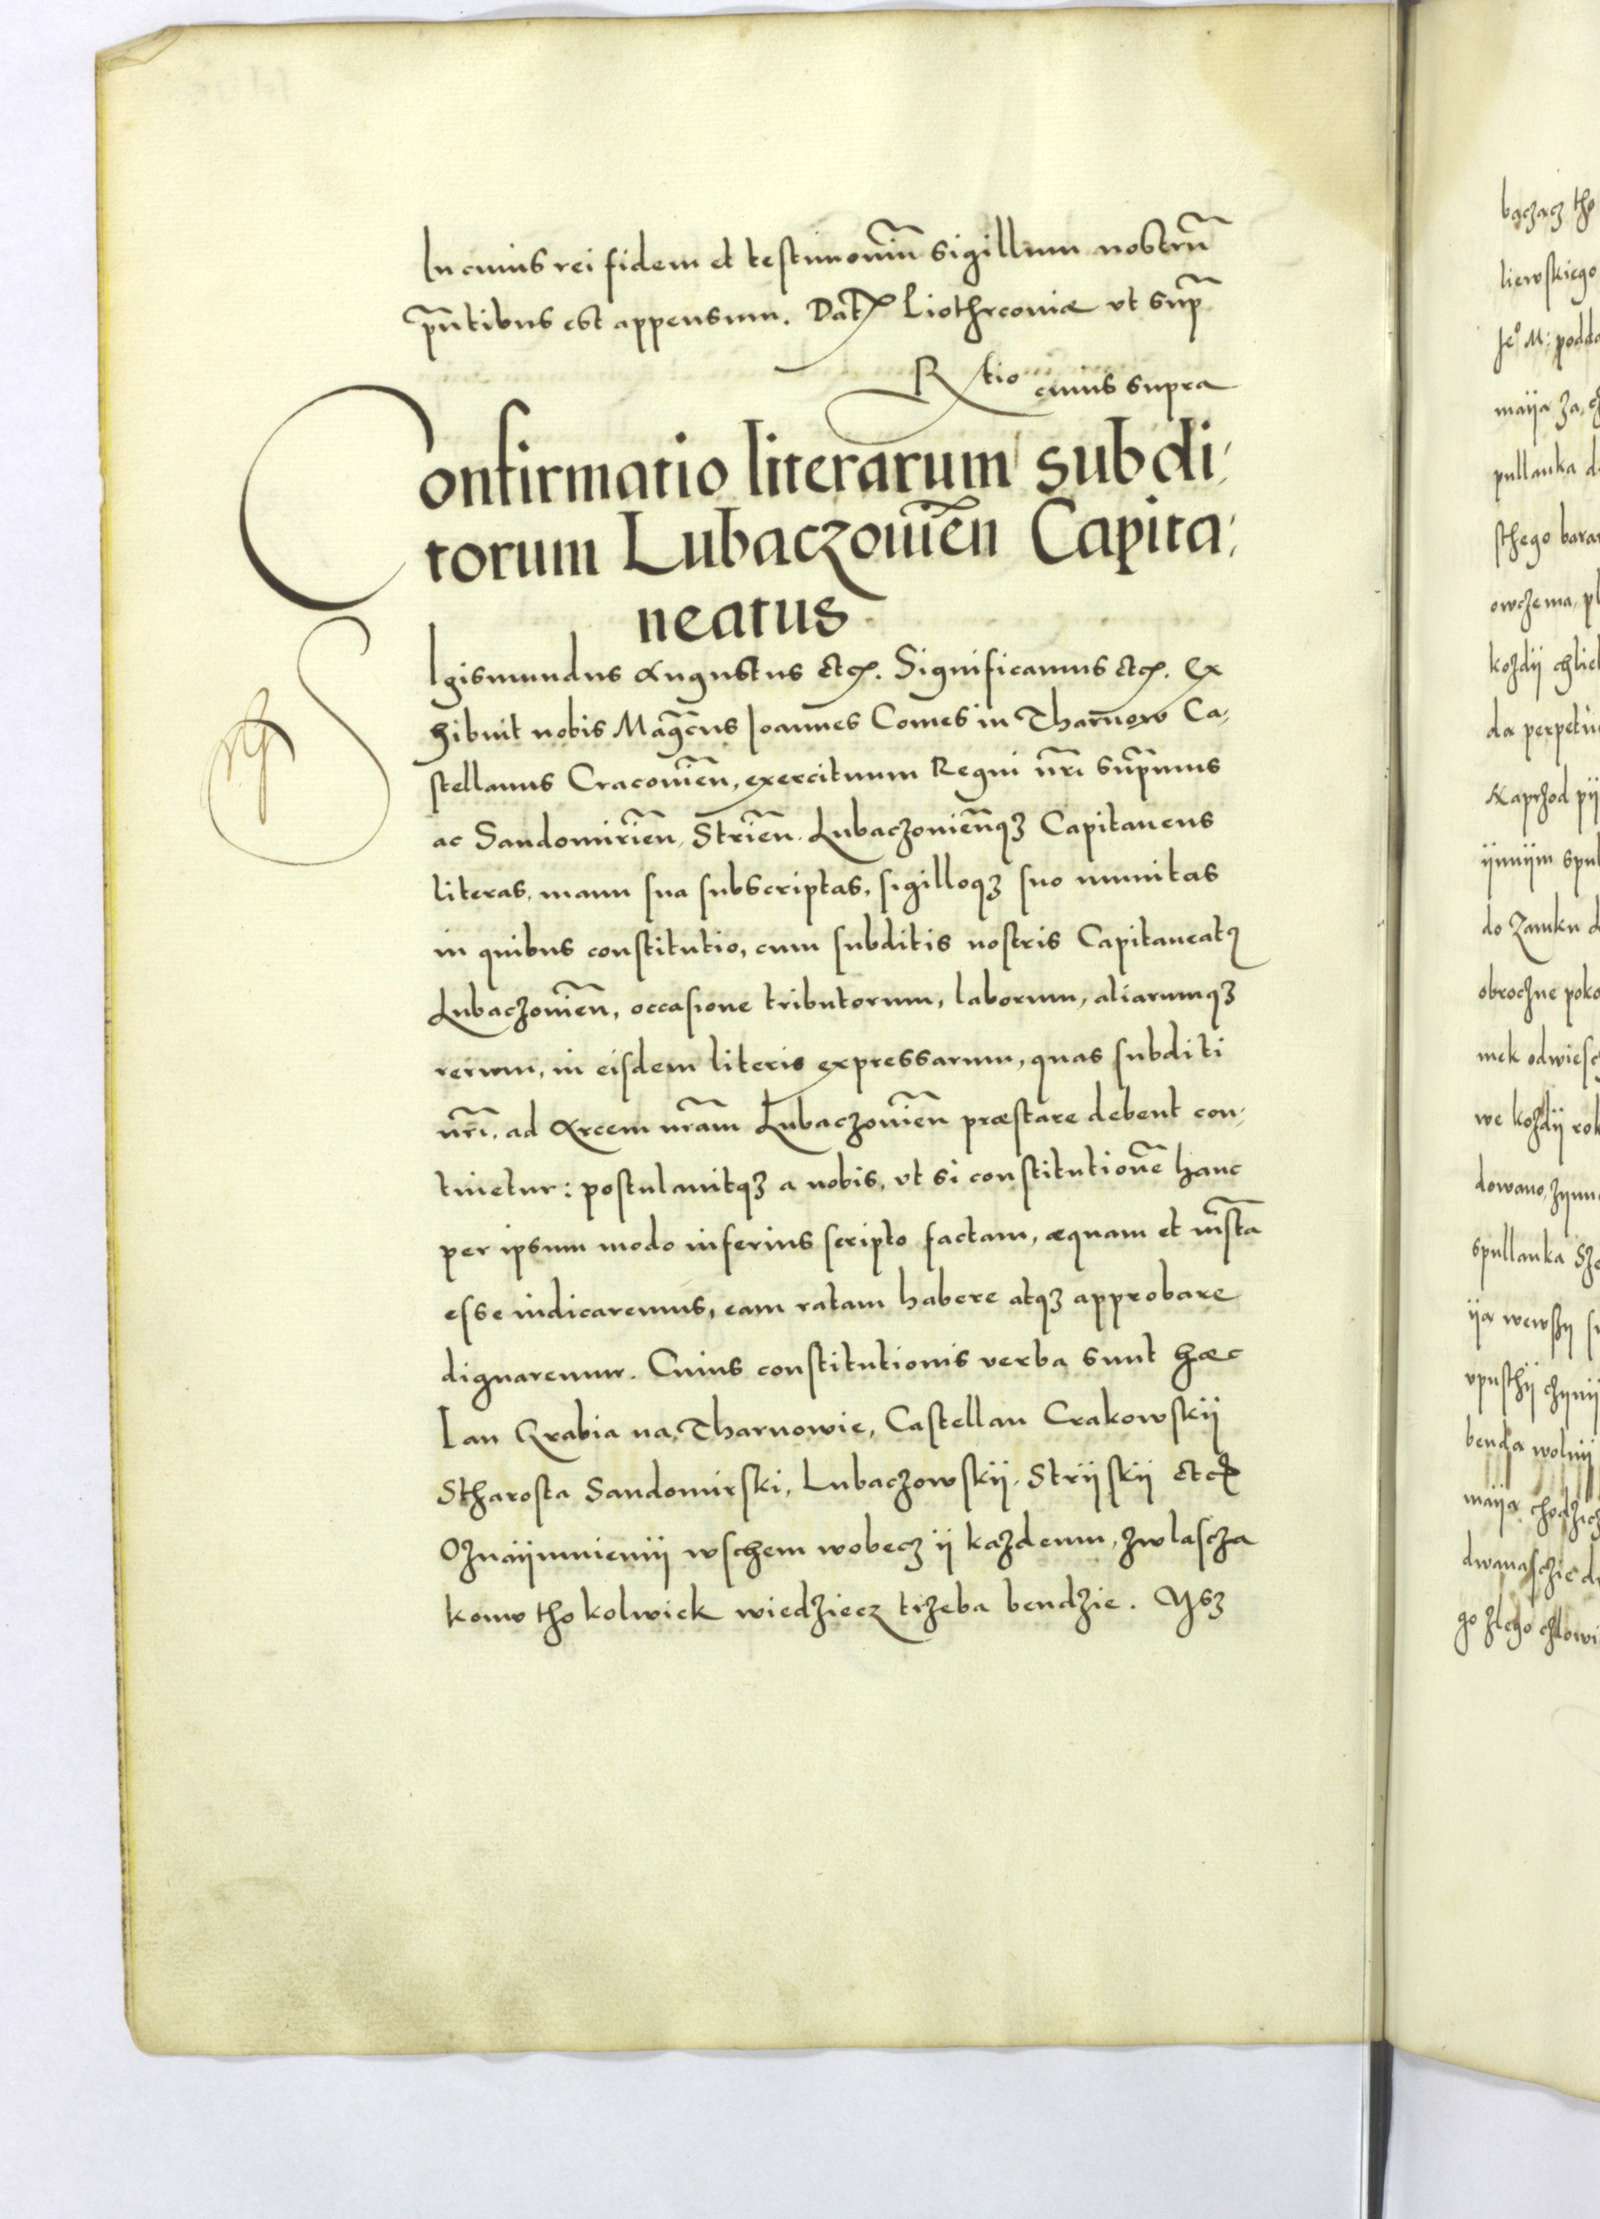 In cuius rei fidem et testimoniũ sigillum nostrũ
p̃ntibus est appensum. Datȝ Piothrcoviæ vt sup̃
Rtio cuius supra
Confirmatio literarum subdi,
torum Lubaczouieñ Capita,
neatus
SIgismundus Augustus etcꝫ. Significamus etcꝫ. Ex
hibuit nobis Magcũs Ioannes Comes in Tharnow Ca,
stellanus Cracouieñ, exercituum Regni nr̃i Supr̃mus
ac Sandomirieñ, Strieñ. Lubaczouieñqꝫ Capitaneus
literas, manu sua subscriptas, sigilloqꝫ suo munitas
in quibus constitutio, cum subditis nostris Capitaneatꝰ
Lubaczouieñ, occasione tributorum, laborum, aliarumqꝫ
rerum, in eisdem literis expressarum, quas subditi
nr̃i, ad Arcem nr̃am Lubaczouieñ præstare debent con,
tinetur: postulauitqꝫ a nobis, vt si constitutionẽ hanc
per ipsum modo inferius scripto factam, æquam et iustã
esse iudicaremus, eam ratam habere atqꝫ approbare
dignaremur. Cuius constitutionis verba sunt hæc
Ian Hrabia na Tharnowie, Castellan Crakowskij
Stharosta Sandomirski, Lubaczowskij. Strijskij etcꝫ
Oznaijmuiemij wschem wobecz ij kazdemu, zwlascza
komu tho kolwiek wiedziecz trzeba bendzie. Ysz
baczacz tho
liewskiego
Je° M: podda
maija za
pullanka d
sthego bara
owczema, pl
kozdij chlie
da perpetu
Aaprzod pij
ijmijm spul
do Zamku d
obroczne poko
mek odwiesc
we kozdij rok
dowano, zijmu
spullanka Sze
ija wewszij
vpusthij chijnij
benda wolnij
maija chodzicz
dwanasczie d
go zlego czlowi